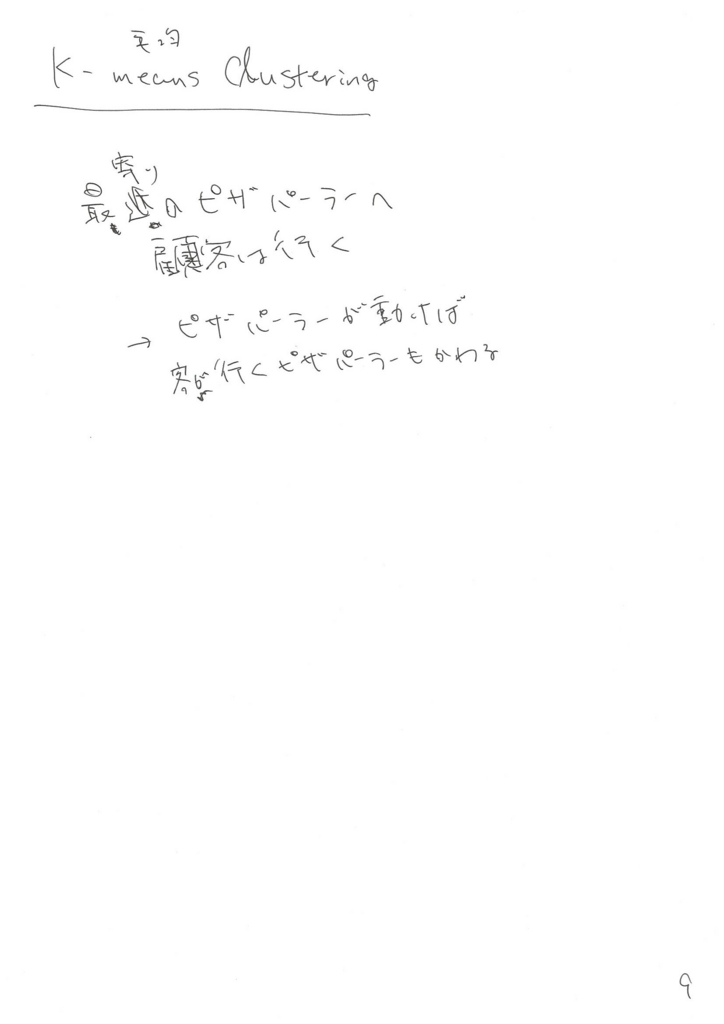 平均
K-means Clustering
寄り
最近のピザパーラーへ
顧客は行く
→ ピザパーラーが動けば
客が行くピザパーラーもかわる
9